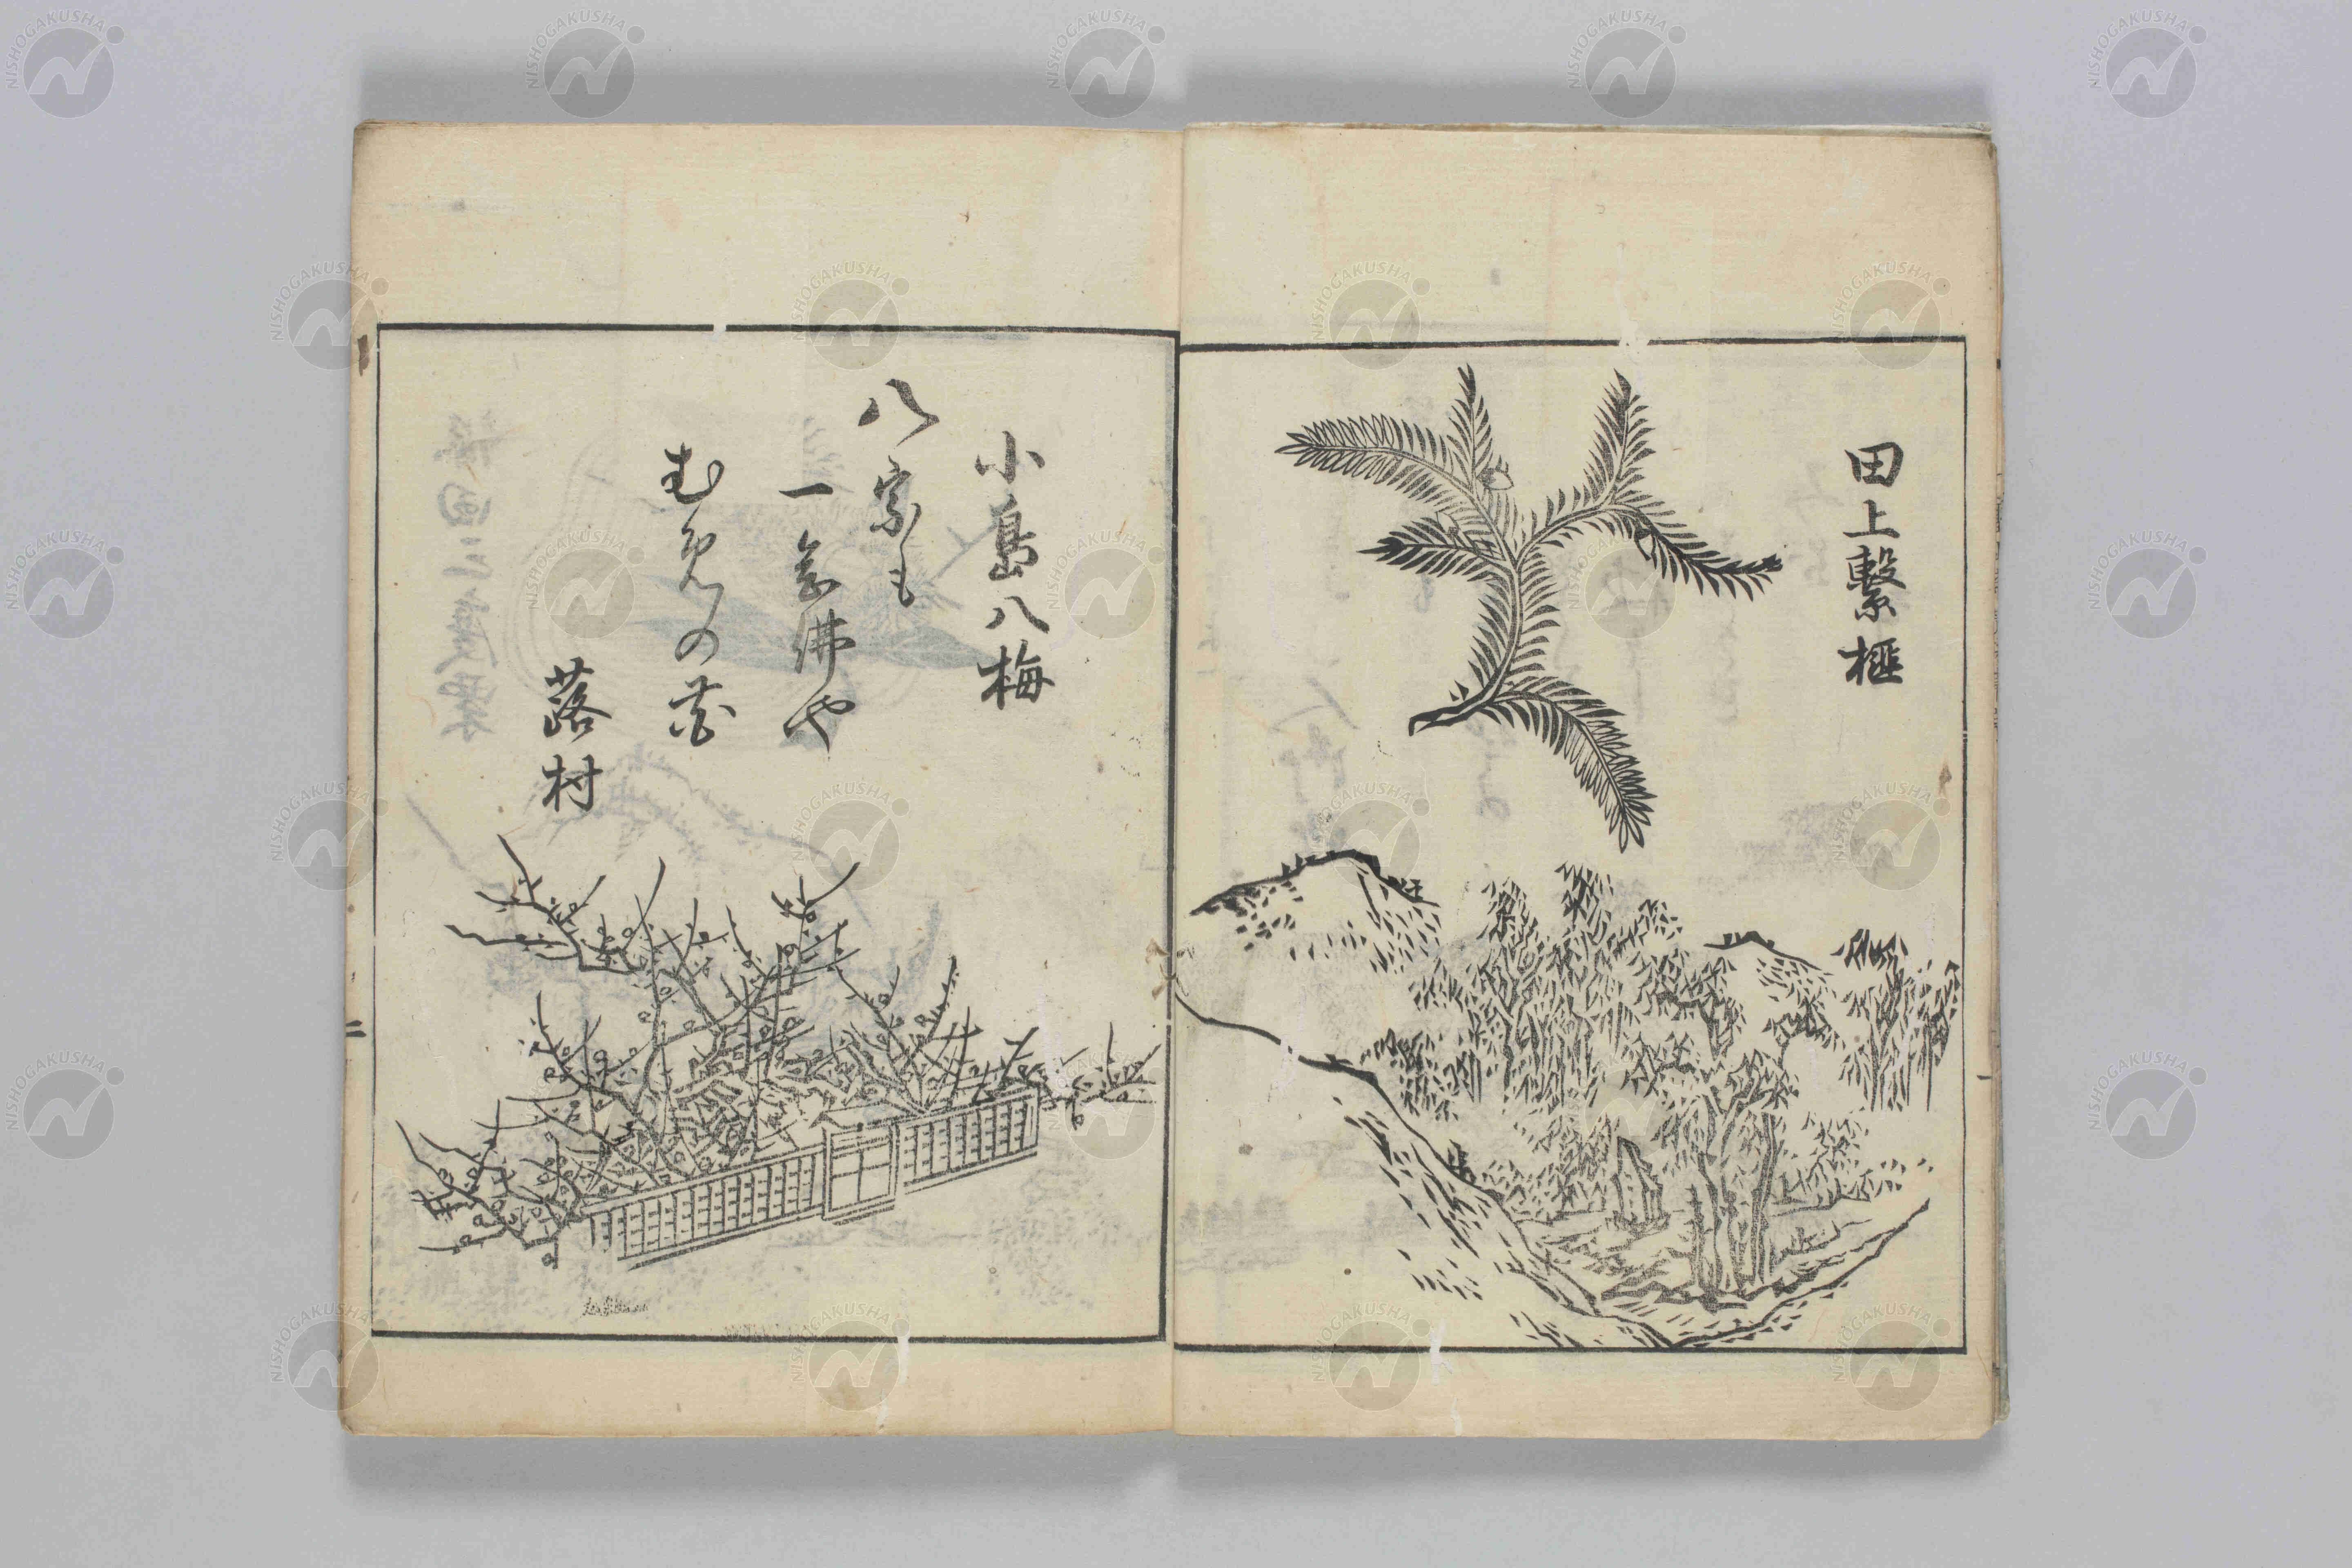 田上繫榧
小島八梅
八宗も
一念佛や
むめの花
蕗村
NISHOGAKUSHA